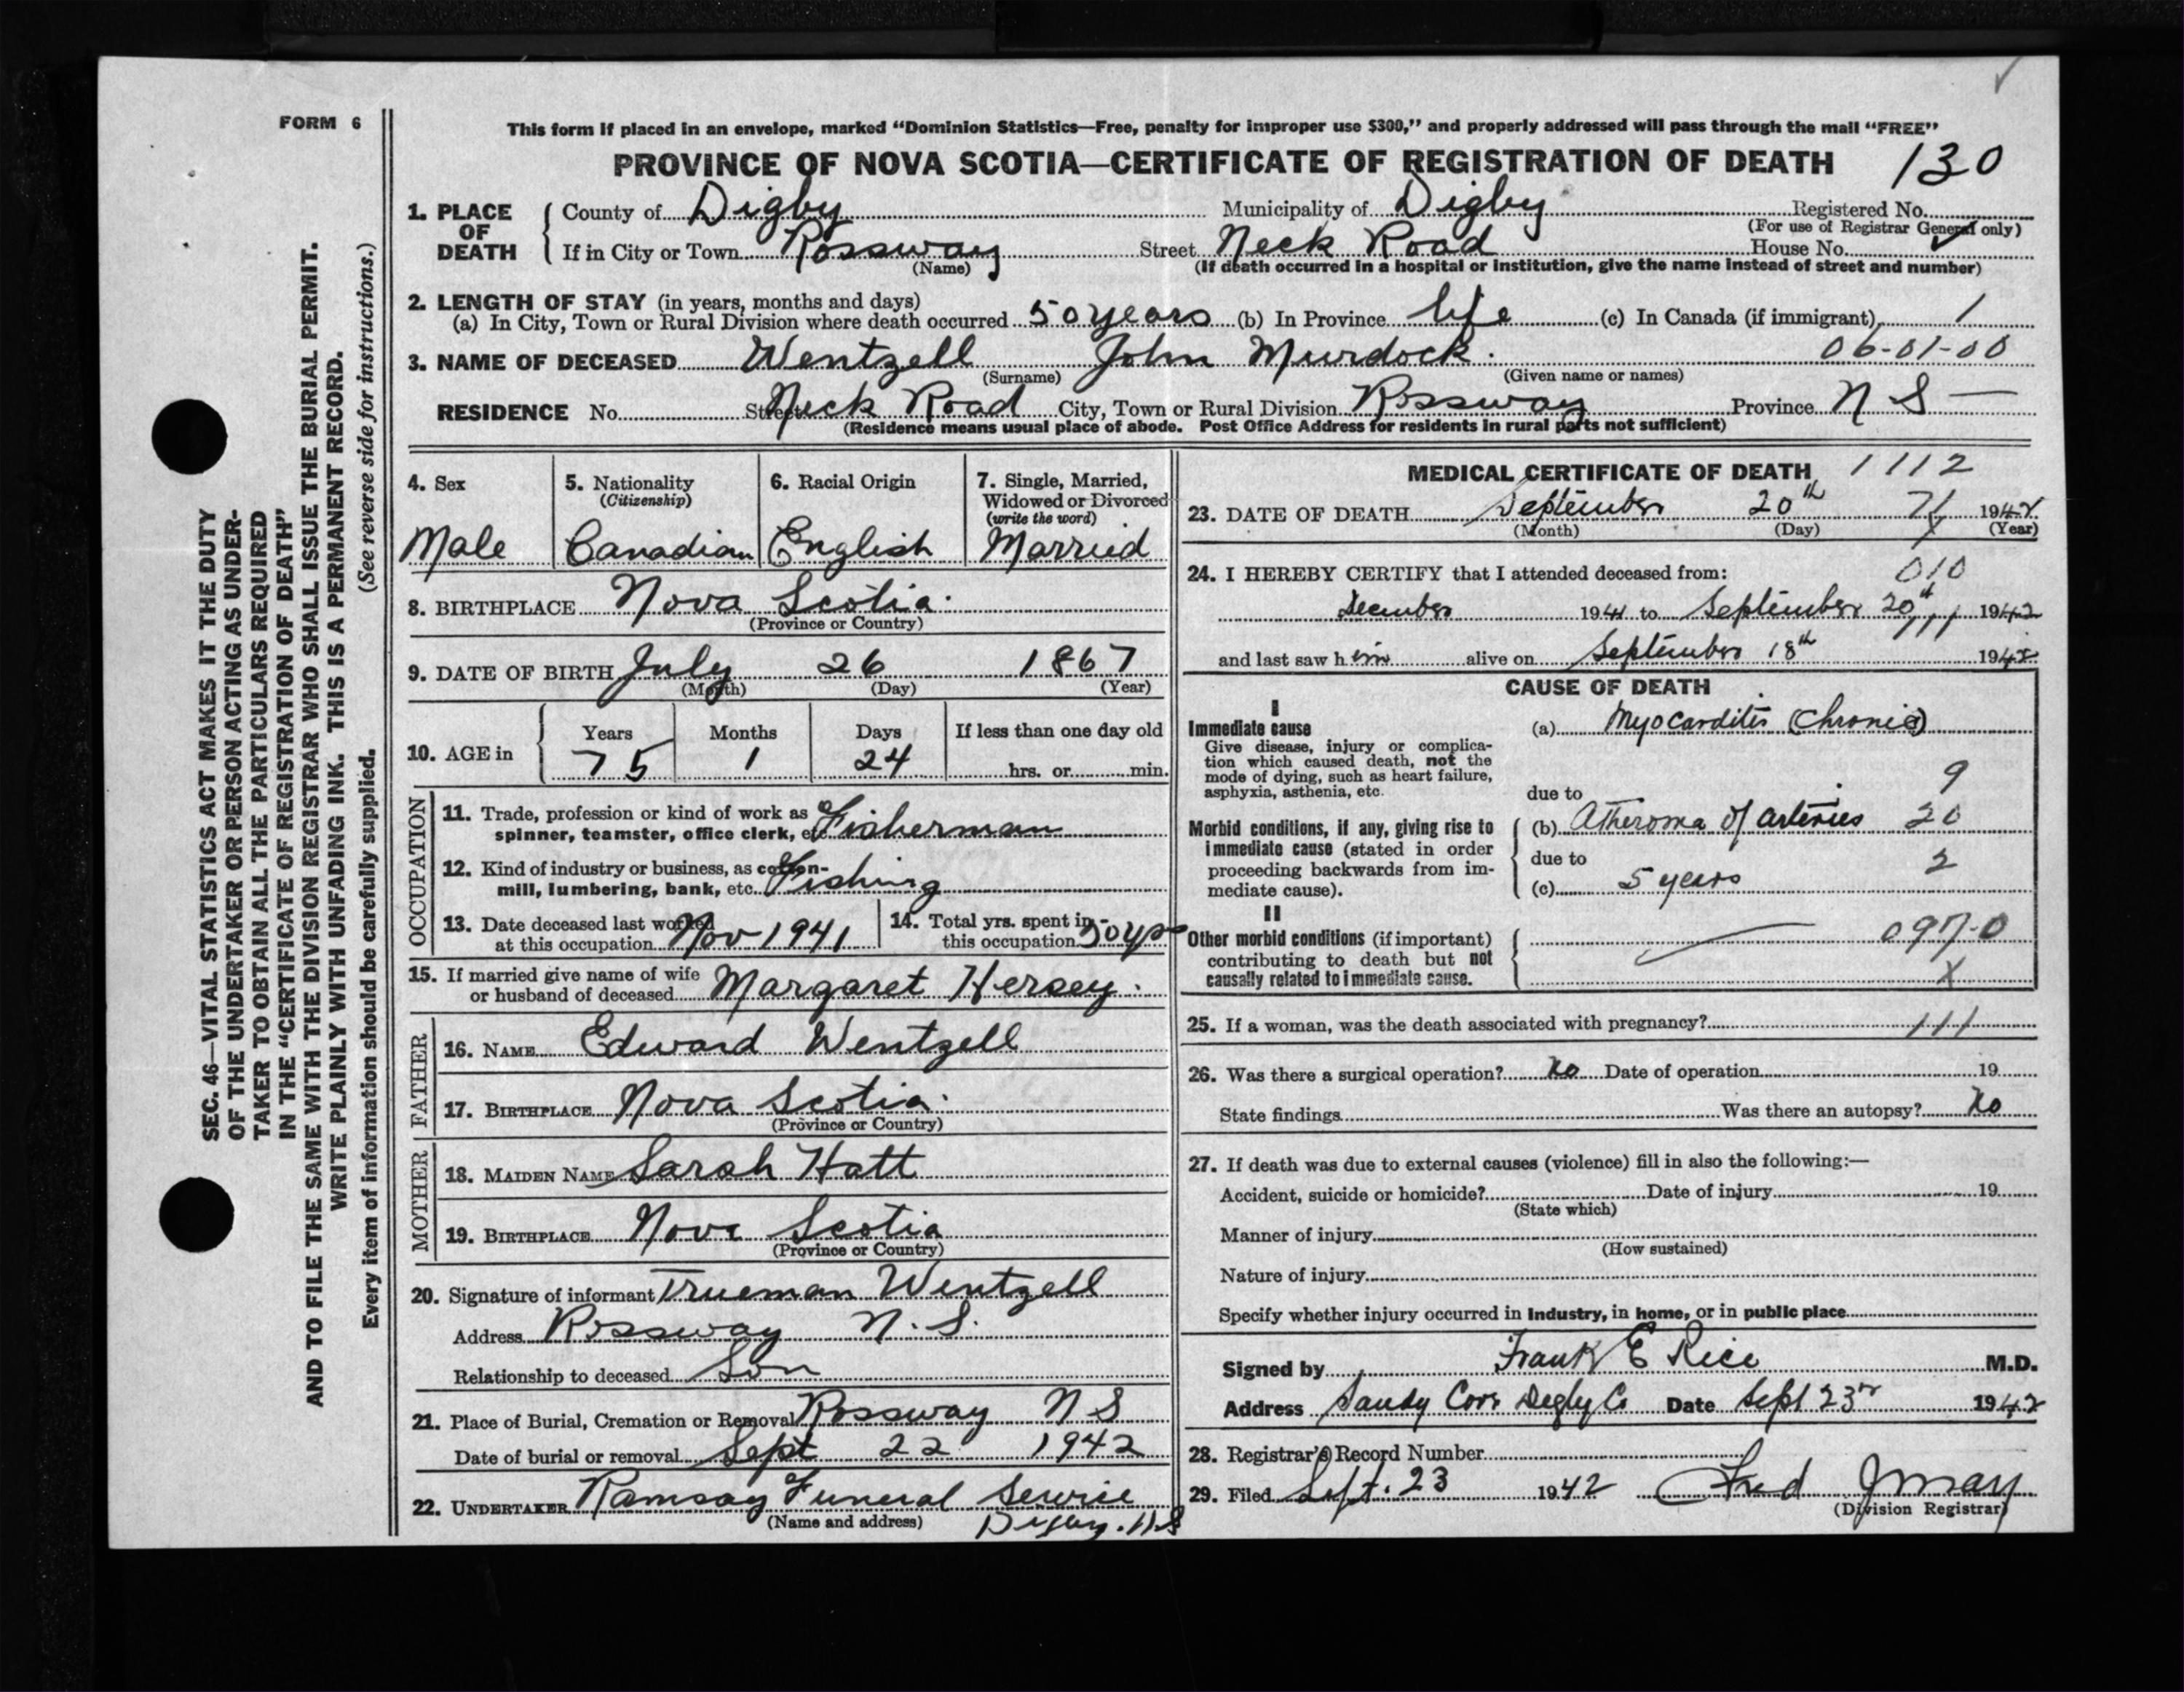 FORM 6
This form if placed in an envelope, marked "Dominion Statistics—Free, penalty for improper use $300," and properly addressed will pass through the mail "FREE"
PROVINCE OF NOVA SCOTIA—CERTIFICATE OF REGISTRATION OF DEATH 130
1. PLACE OF DEATH
County of Digby Municipality of Digby Registered No.
(For use of Registrar General only)
If in City or Town Rossway Street Neck Road House No.
(Name) (If death occurred in a hospital or institution, give the name instead of street and number)
2. LENGTH OF STAY (in years, months and days)
(a) In City, Town or Rural Division where death occurred 50 years (b) In Province life (c) In Canada (if immigrant) 1
3. NAME OF DECEASED Wentzell John Murdock. 06-01-00
(Surname) (Given name or names)
RESIDENCE No. Street Neck Road City, Town or Rural Division Rossway Province N S —
(Residence means usual place of abode. Post Office Address for residents in rural parts not sufficient)
4. Sex
Male
5. Nationality
(Citizenship)
Canadian
6. Racial Origin
English
7. Single, Married,
Widowed or Divorced
(write the word)
Married
8. BIRTHPLACE Nova Scotia.
(Province or Country)
9. DATE OF BIRTH July 26 1867
(Month) (Day) (Year)
10. AGE in
Years Months Days If less than one day old
75 1 24 hrs. or min.
OCCUPATION
11. Trade, profession or kind of work as
spinner, teamster, office clerk, etc. Fisherman
12. Kind of industry or business, as cotton-
mill, lumbering, bank, etc. Fishing
13. Date deceased last worked
at this occupation Nov 1941
14. Total yrs. spent in
this occupation 50 yrs
15. If married give name of wife
or husband of deceased Margaret Hersey.
FATHER
16. NAME Edward Wentzell
17. BIRTHPLACE Nova Scotia.
(Province or Country)
MOTHER
18. MAIDEN NAME Sarah Hatt
19. BIRTHPLACE Nova Scotia
(Province or Country)
20. Signature of informant Trueman Wentzell
Address Rossway N.S.
Relationship to deceased Son
21. Place of Burial, Cremation or Removal Rossway N S
Date of burial or removal Sept 22 1942
22. UNDERTAKER Ramsay Funeral Service
(Name and address) Digby. N S
MEDICAL CERTIFICATE OF DEATH 1112
23. DATE OF DEATH September 20th 1942
(Month) (Day) (Year)
24. I HEREBY CERTIFY that I attended deceased from: 010
December 1941 to September 20th 1942
111
and last saw him alive on September 18th 1942
CAUSE OF DEATH
I
Immediate cause
Give disease, injury or complica-
tion which caused death, not the
mode of dying, such as heart failure,
asphyxia, asthenia, etc.
(a) Myocarditis (Chronic)
due to 9
Morbid conditions, if any, giving rise to
immediate cause (stated in order
proceeding backwards from im-
mediate cause).
(b) Atheroma of arteries 20
due to 2
(c) 5 years
II
Other morbid conditions (if important)
contributing to death but not
causally related to immediate cause.
097-0
X
25. If a woman, was the death associated with pregnancy? 111
26. Was there a surgical operation? No Date of operation 19
State findings Was there an autopsy? No
27. If death was due to external causes (violence) fill in also the following:—
Accident, suicide or homicide? Date of injury 19
(State which)
Manner of injury
(How sustained)
Nature of injury
Specify whether injury occurred in Industry, in home, or in public place
Signed by Frank E Rice M.D.
Address Sandy Cove Digby Co Date Sept 23 1942
28. Registrar's Record Number
29. Filed Sept. 23 1942 Fred
(Division Registrar)
SEC. 46—VITAL STATISTICS ACT MAKES IT THE DUTY
OF THE UNDERTAKER OR PERSON ACTING AS UNDER-
TAKER TO OBTAIN ALL THE PARTICULARS REQUIRED
IN THE "CERTIFICATE OF REGISTRATION OF DEATH"
AND TO FILE THE SAME WITH THE DIVISION REGISTRAR WHO SHALL ISSUE THE BURIAL PERMIT.
WRITE PLAINLY WITH UNFADING INK. THIS IS A PERMANENT RECORD.
Every item of information should be carefully supplied. (See reverse side for instructions.)